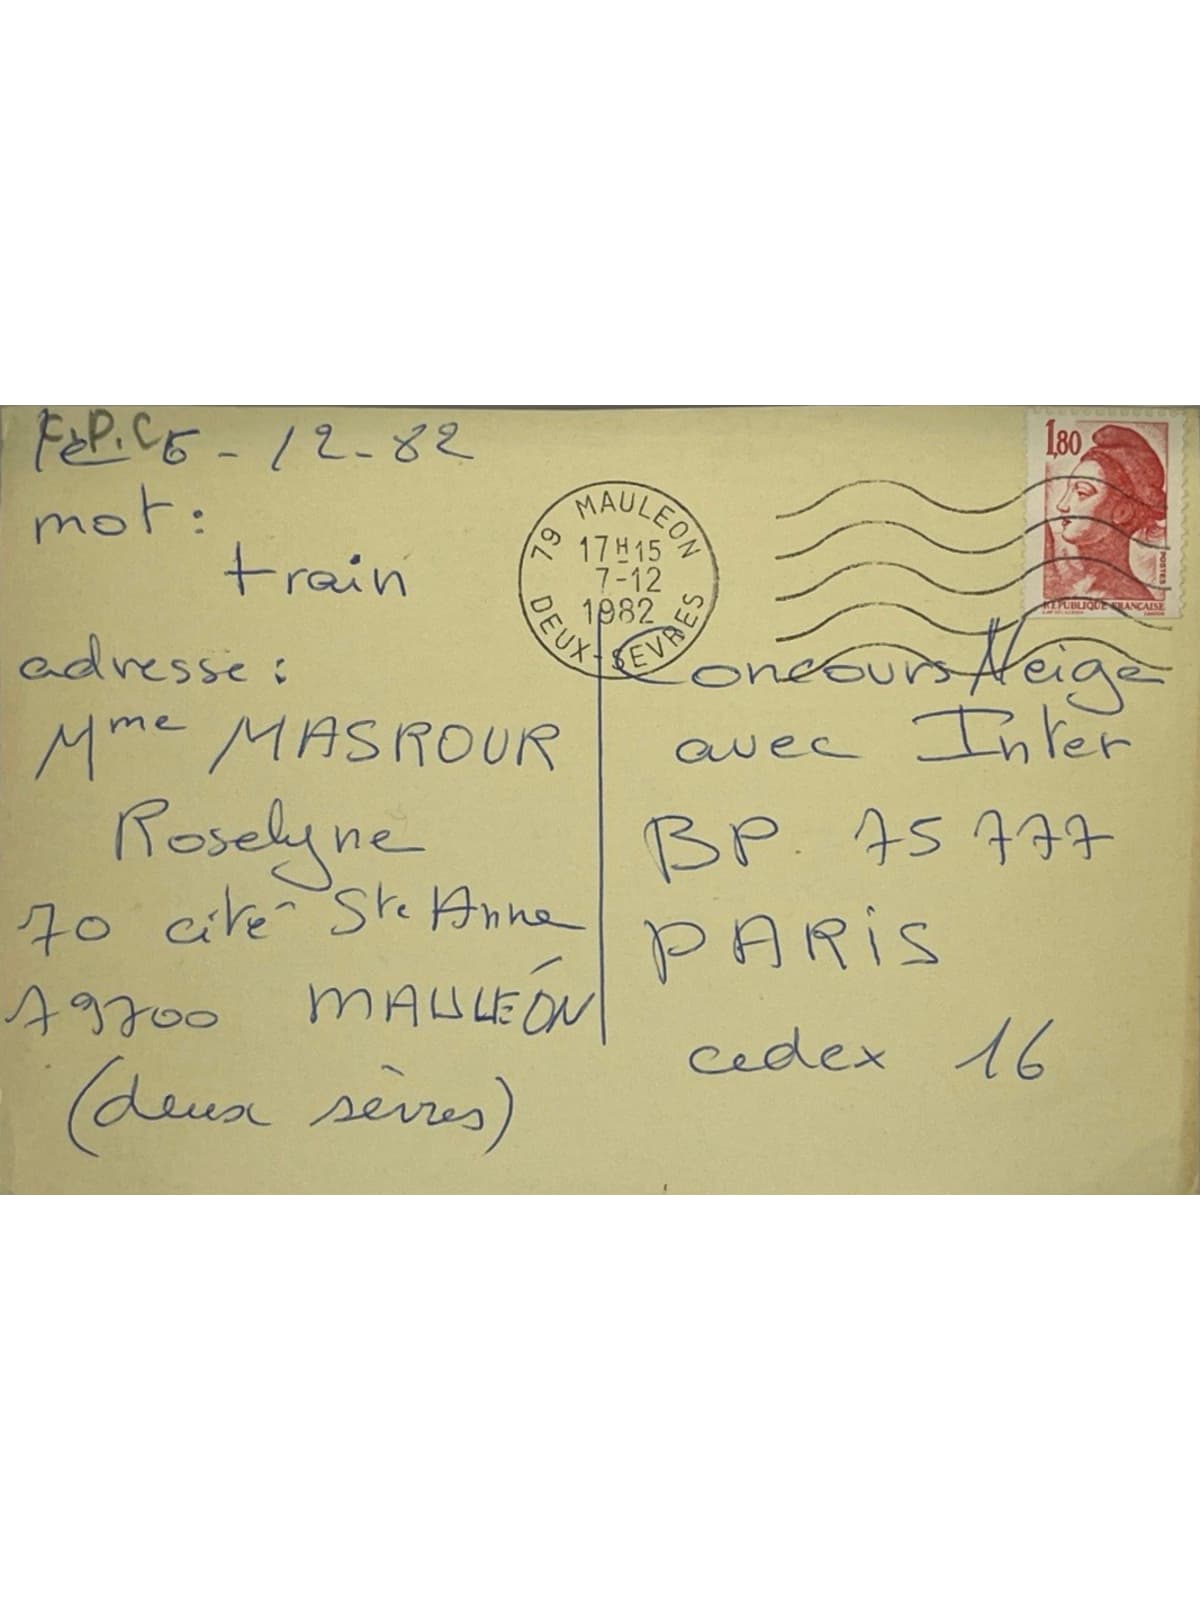 F.P.C
le 6-12-82
mot:
train
adresse:
Mme MASROUR
Roselyne
70 cité Ste Anne
79700 MAULÉON
(deux sèvres)
79 MAULEON
17H15
7-12
1982
DEUX-SEVRES
1,80
POSTES
REPUBLIQUE FRANÇAISE
Concours Neige
avec Inter
BP. 75 777
PARIS
cedex 16